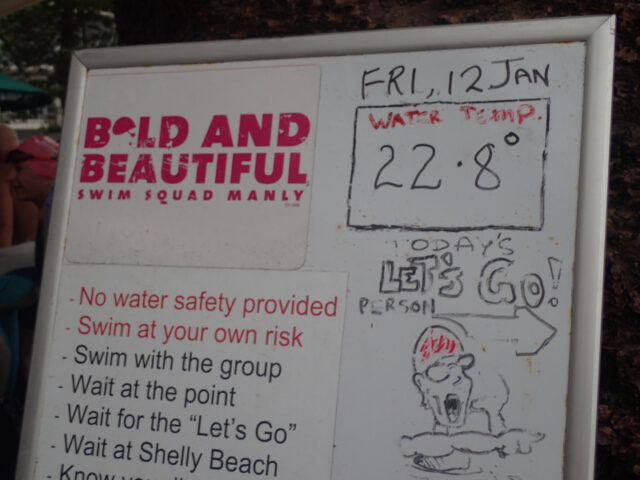 BOLD AND
BEAUTIFUL
SWIM SQUAD MANLY
FRI, 12 JAN
WATER TEMP.
22.8°
TODAY'S
LET'S GO!
PERSON
- No water safety provided
- Swim at your own risk
- Swim with the group
- Wait at the point
- Wait for the "Let's Go"
- Wait at Shelly Beach
- Know